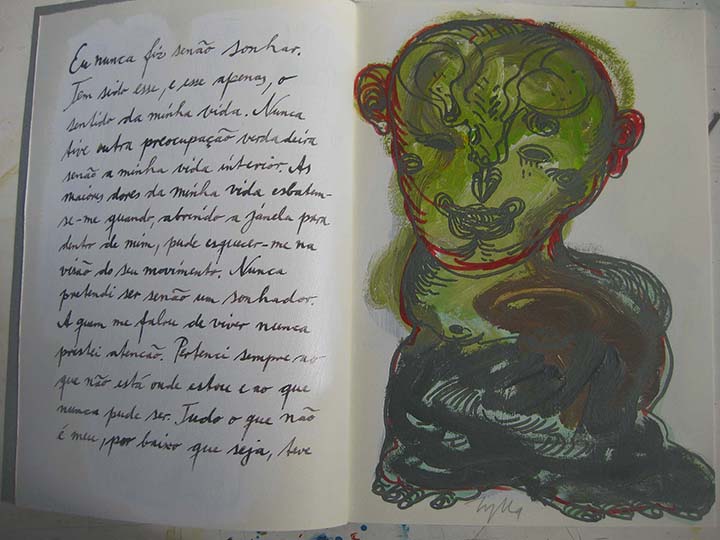 Eu nunca fiz senão sonhar.
Tem sido esse, e esse apenas, o
sentido da minha vida. Nunca
tive outra preocupação verdadeira
senão a minha vida interior. As
maiores dores da minha vida esbatem-
se-me quando, abrindo a janela para
dentro de mim, pude esquecer-me na
visão do seu movimento. Nunca
pretendi ser senão um sonhador.
A quem me falou de viver nunca
prestei atenção. Pertenci sempre ao
que não está onde estou e ao que
nunca pude ser. Tudo o que não
é meu, por baixo que seja, teve